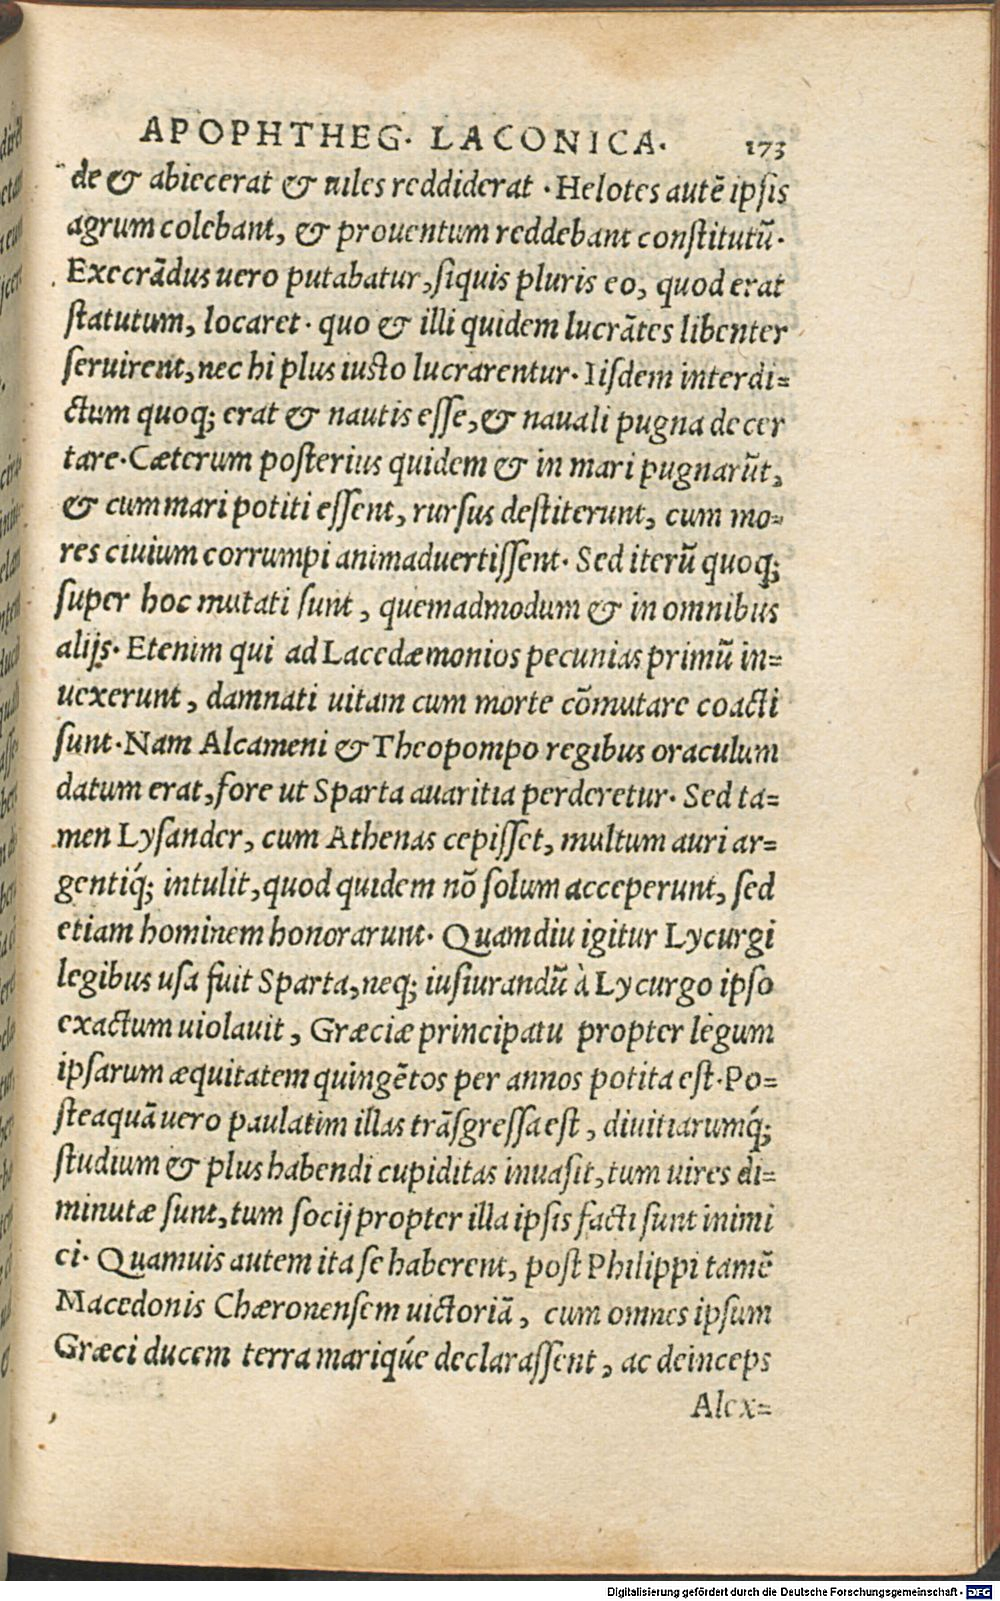 APOPHTHEG. LACONICA. 173
de & abiecerat & uiles reddiderat. Helotes autē ipsis
agrum colebant, & prouentum reddebant constitutū.
Execrādus uero putabatur, siquis pluris eo, quod erat
statutum, locaret. quo & illi quidem lucrātes libenter
seruirent, nec hi plus iusto lucrarentur. Iisdem interdi=
ctum quoq; erat & nautis esse, & nauali pugna decer
tare. Cæterum posterius quidem & in mari pugnarūt,
& cum mari potiti essent, rursus destiterunt, cum mo=
res ciuium corrumpi animaduertissent. Sed iterū quoq;
super hoc mutati sunt, quemadmodum & in omnibus
alijs. Etenim qui ad Lacedæmonios pecunias primū in=
uexerunt, damnati uitam cum morte cōmutare coacti
sunt. Nam Alcameni & Theopompo regibus oraculum
datum erat, fore ut Sparta auaritia perderetur. Sed ta=
men Lysander, cum Athenas cepisset, multum auri ar=
gentiq́; intulit, quod quidem nō solum acceperunt, sed
etiam hominem honorarunt. Quamdiu igitur Lycurgi
legibus usa fuit Sparta, neq; iusiurandū à Lycurgo ipso
exactum uiolauit, Græciæ principatu propter legum
ipsarum æquitatem quingētos per annos potita est. Po=
steaquā uero paulatim illas trāsgressa est, diuitiarumq́;
studium & plus habendi cupiditas inuasit, tum uires di=
minutæ sunt, tum socij propter illa ipsis facti sunt inimi
ci. Quamuis autem ita se haberent, post Philippi tamē
Macedonis Chæronensem uictoriā, cum omnes ipsum
Græci ducem terra mariq́ue declarassent, ac deinceps
Alex=
Digitalisierung gefördert durch die Deutsche Forschungsgemeinschaft - DFG